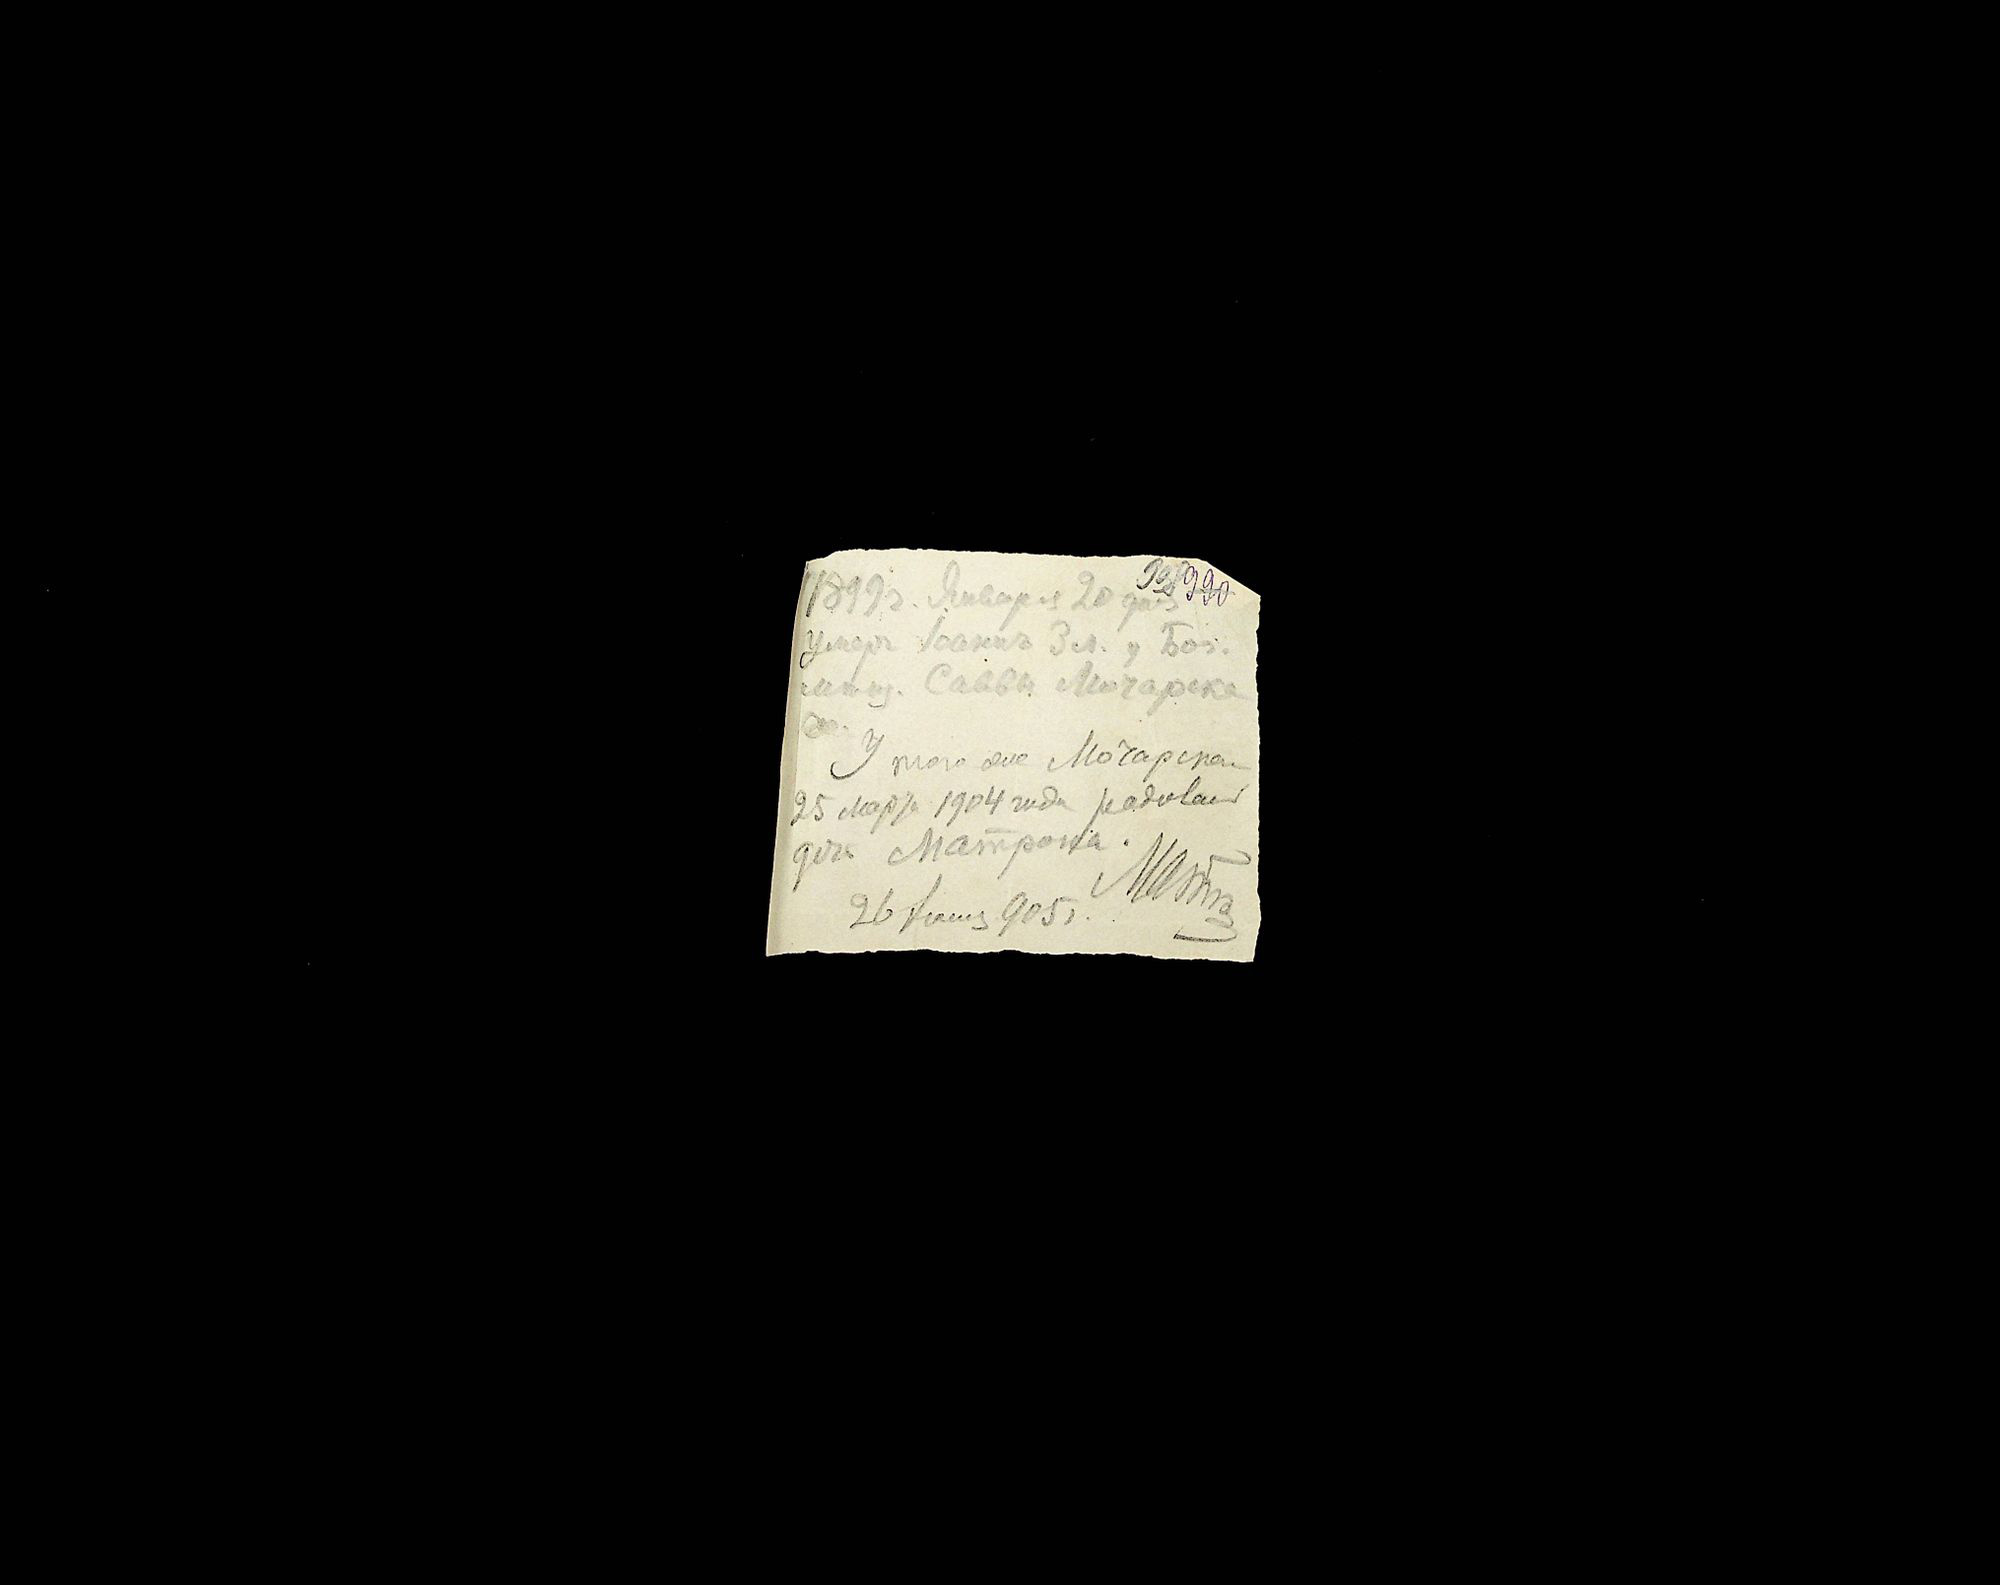 990
1899 г. Января 20 дня
умеръ Іоаннъ Зл. у Бог.
мѣщ. Саввы Мочарска
го.
У того же Мочарска
25 марта 1904 года родилась
дочь Матрона.
26 905 г.